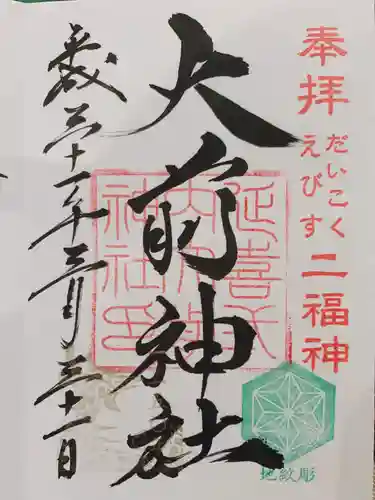 奉拝
だいこく
えびす
二福神
大前神社
延喜式内大前神社印
平成三十一年三月三十一日
地紋彫